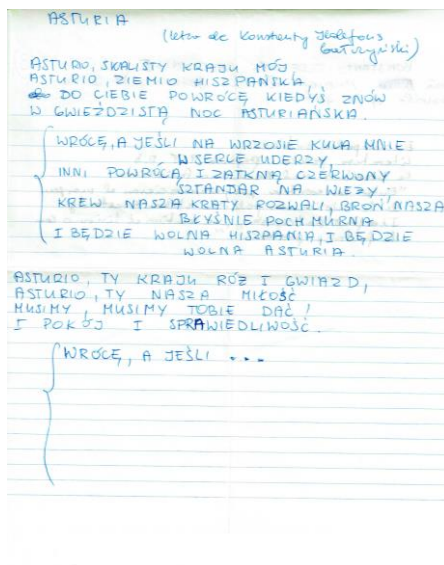 ASTURIA
(letra de Konstanty Ildefons
Gałczyński)
ASTURIO, SKALISTY KRAJU MÓJ
ASTURIO, ZIEMIO HISZPAŃSKA
DO CIEBIE POWRÓCĘ KIEDYŚ ZNÓW
W GWIEŹDZISTĄ NOC ASTURIAŃSKA.
WRÓCĘ, A JEŚLI NA WRZOSIE KULA MNIE
W SERCE UDERZY,
INNI POWRÓCĄ I ZATKNĄ CZERWONY
SZTANDAR NA WIEŻY;
KREW NASZA KRATY ROZWALI, BROŃ NASZA
BŁYŚNIE POCHMURNA
I BĘDZIE WOLNA HISZPANIA, I BĘDZIE
WOLNA ASTURIA.
ASTURIO, TY KRAJU RÓŻ I GWIAZD,
ASTURIO, TY NASZA MIŁOŚĆ
MUSIMY, MUSIMY TOBIE DAĆ!
I POKÓJ I SPRAWIEDLIWOŚĆ.
WRÓCĘ, A JEŚLI ...